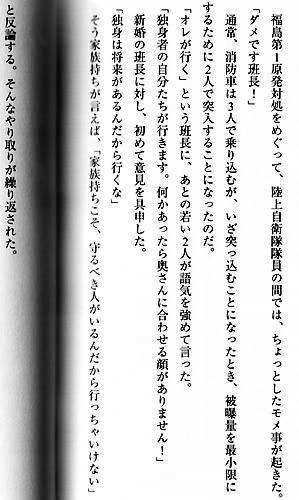 福島第1原発対処をめぐって、陸上自衛隊隊員の間では、ちょっとしたモメ事が起きた。
「ダメです班長！」
通常、消防車は3人で乗り込むが、いざ突っ込むことになったとき、被曝量を最小限に
するために2人で突入することになったのだ。
「オレが行く」という班長に、あとの若い2人が語気を強めて言った。
「独身者の自分たちが行きます。何かあったら奥さんに合わせる顔がありません！」
新婚の班長に対し、初めて意見を具申した。
「独身は将来があるんだから行くな」
そう家族持ちが言えば、「家族持ちこそ、守るべき人がいるんだから行っちゃいけない」
と反論する。そんなやり取りが繰り返された。